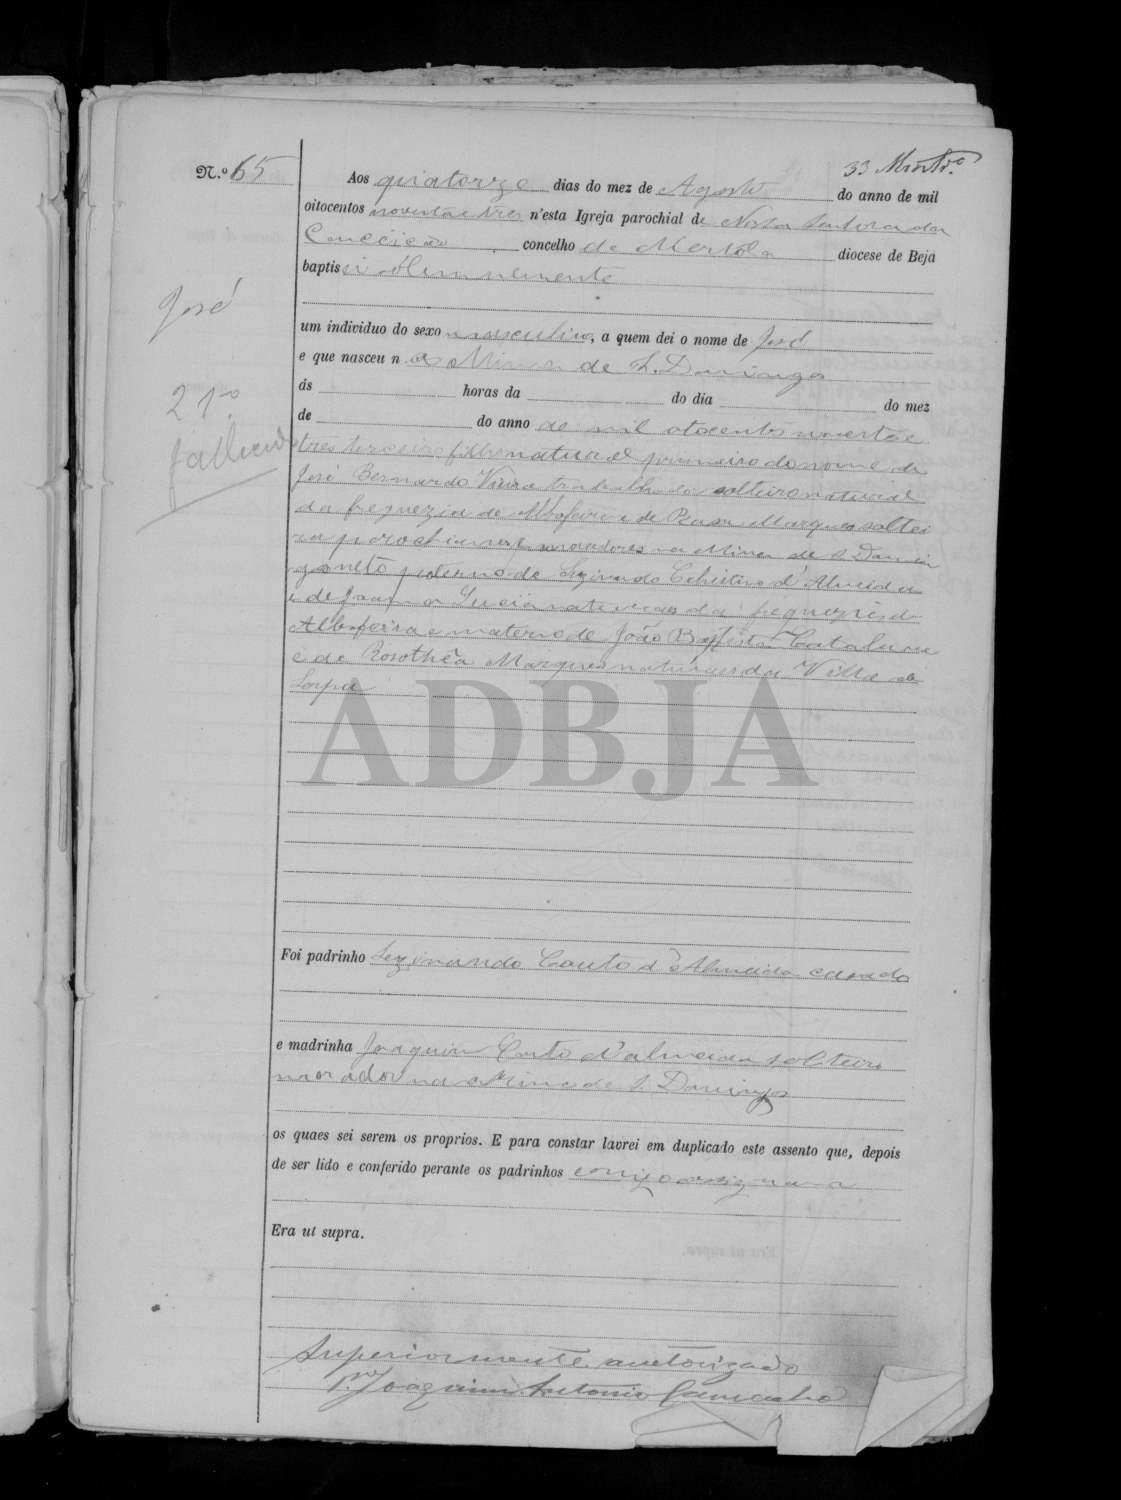 33 Montr.º
N.º 65
Aos quatorze dias do mez de Agosto do anno de mil
oitocentos noventa e tres n'esta Igreja parochial de Nossa Senhora da
Conceição concelho de Mertola diocese de Beja
baptisei sólemnemente
José
um individuo do sexo masculino, a quem dei o nome de José
e que nasceu n a Mina de S. Domingos
ás horas da do dia do mez
21º
de do anno de mil oitocentos noventa e
fallecido
tres terceiro filho natural primeiro do nome de
José Bernardo Vieira trabalhador solteiro natural
da freguezia de Albofeira e de Rosa Marques soltei
ra parochianos e moradores na Mina de S. Domin
gos neto paterno de Sezinando d'Almeida
e de Joanna Lucia naturaes da freguezia d
Albofeira e materno de João Baptista
e de Dorothêa Marques naturaes da Villa de
Serpa
ADBJA
Foi padrinho Sezinando Couto d'Almeida casado
e madrinha Joaquim Couto d'Almeida solteiro
morador na Mina de S. Domingos
os quaes sei serem os proprios. E para constar lavrei em duplicado este assento que, depois
de ser lido e conferido perante os padrinhos comigo assigna
Era ut supra.
Superiormente auctorizado
P.e Joaquim Antonio Camacho